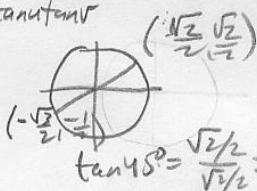 tanutanv
(√2/2, √2/2)
(-√3/2, -1/2)
tan45° = √2/2 / √2/2 =